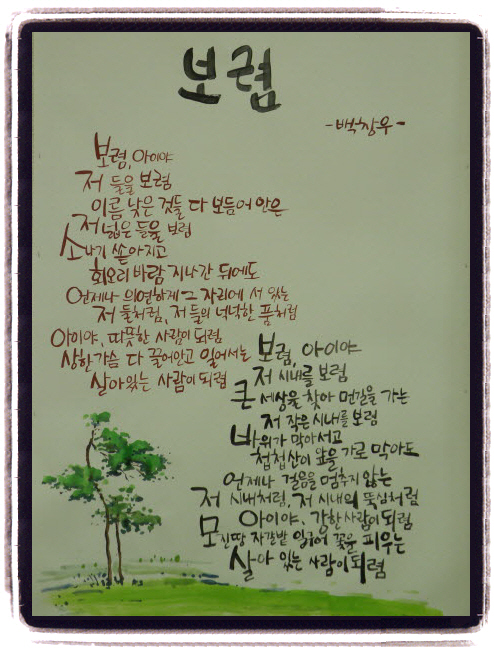 보렴
-백창우-
보렴, 아이야
저 들을 보렴
이름 낮은 것들 다 보듬어 안은
저 넓은 들을 보렴
소나기 쏟아지고
회오리 바람 지나간 뒤에도
언제나 의연하게 그 자리에 서 있는
저 들처럼, 저 들의 넉넉한 품처럼
아이야, 따뜻한 사람이 되렴
상한 가슴 다 끌어안고 일어서는
살아있는 사람이 되렴
보렴, 아이야
저 시내를 보렴
큰 세상을 찾아 먼길을 가는
저 작은 시내를 보렴
바위가 막아서고
첩첩산이 앞을 가로 막아도
언제나 걸음을 멈추지 않는
저 시내처럼, 저 시내의 뚝심처럼
아이야, 강한 사람이 되렴
모진땅 자갈밭 일구어 꽃을 피우는
살아 있는 사람이 되렴